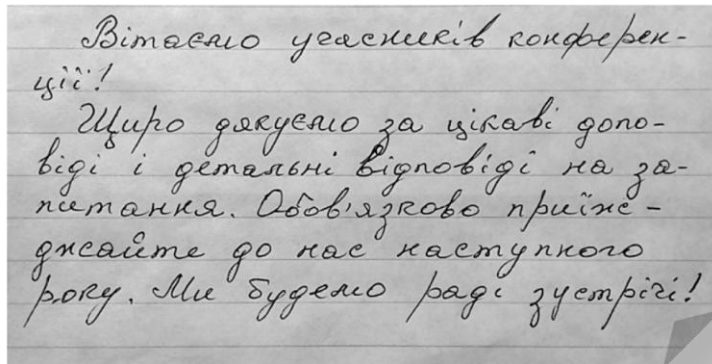 Вітаємо учасників конферен-
ції!
Щиро дякуємо за цікаві допо-
віді і детальні відповіді на за-
питання. Обов'язково приїж-
джайте до нас наступного
року. Ми будемо раді зустрічі!